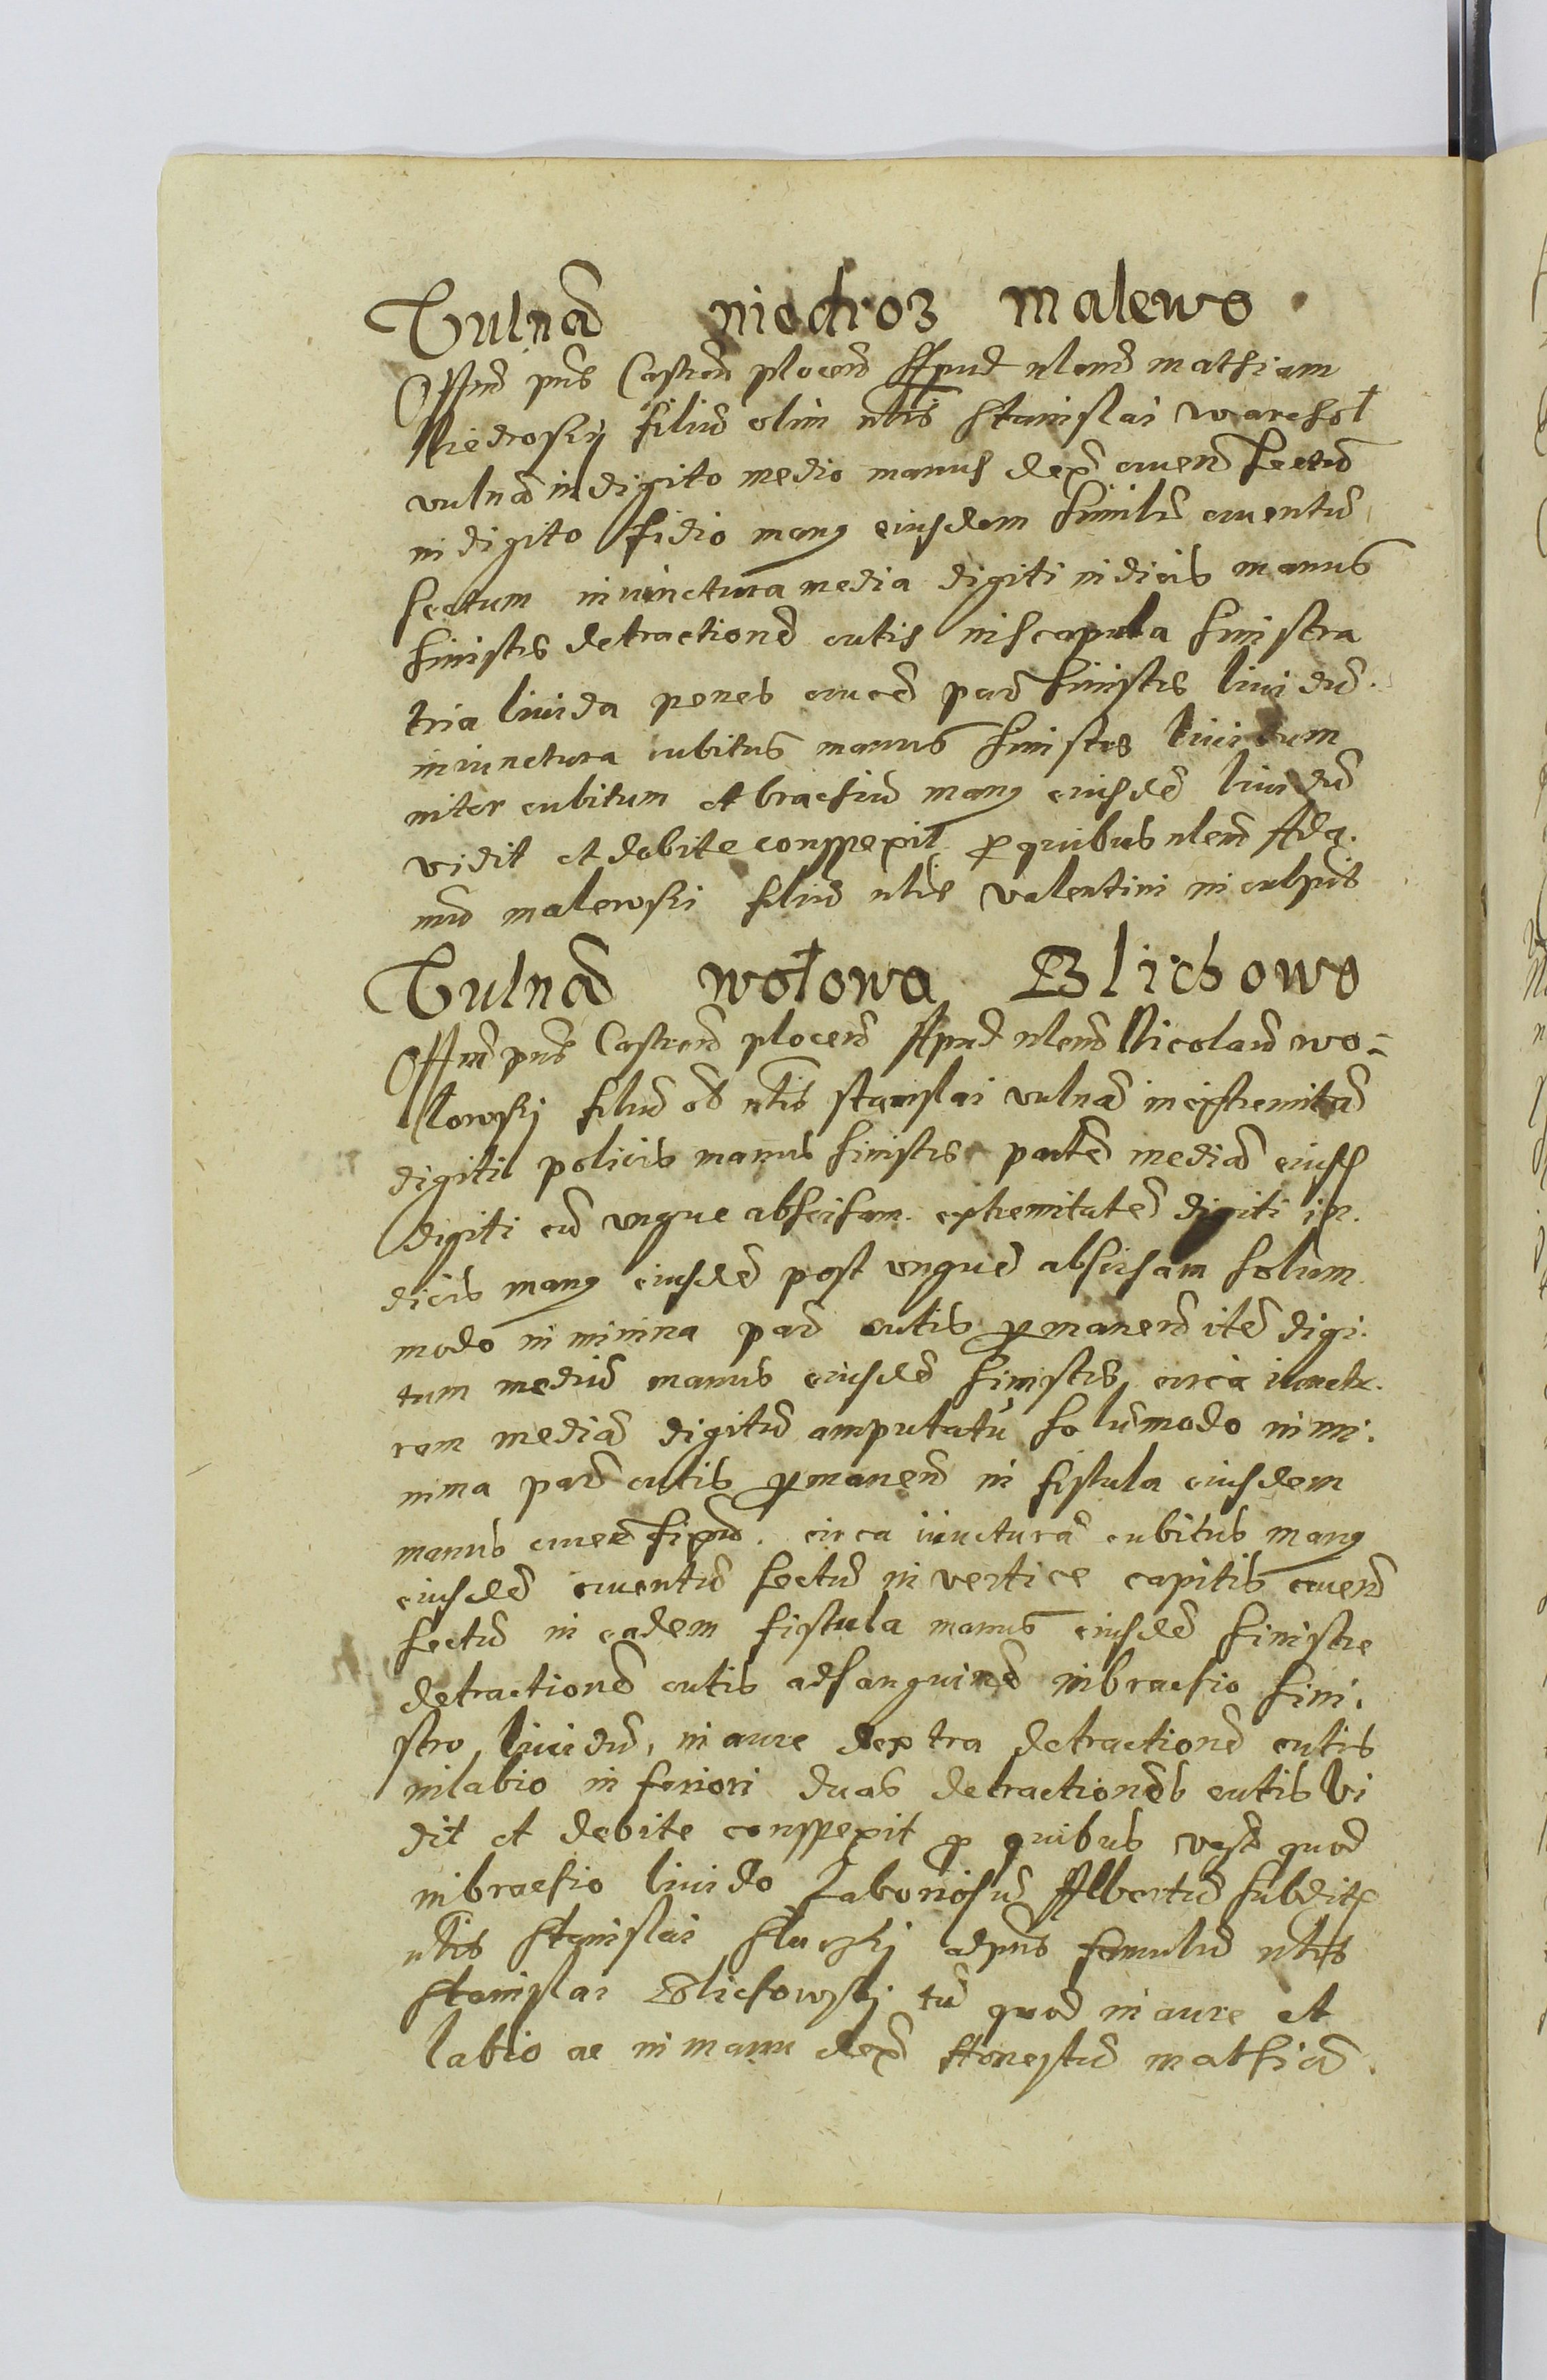 Vulnera niedroz malewo
Offm pns Castren plocen Apud nlem mathiam
Niedroskij filiu olim nlis Stanislai warchoł
vulnera in digito medio manus dex cruen sectu
in digito fidio man9 eiusdem similr cruentu
sectum in iunctura media digiti indicis manus
sinistre detractione cutis in scapula sinistra
tria livida penes par sinistre lividu
in iunctura cubitus manus sinistre lividum
inter cubitum et brachiu man9 eiusde lividu
vidit et debite conspexit p quibus nlem Ada.
mu malewski filiu nlis valentini inculpavit
Vulnera wołowa Blichowo
Offm pns Castren plocen Apud nlem Nicolau wo=
łowskj filiu ol nlis stanislai vulnera in extremita
digiti policis manus sinistre parte media eiusd
digiti cu ungue abscisam. extremitate digiti in.
dicis man9 eiusde post ungue abscisam solum
modo in minima par cutis pmanen ite digi.
tum mediu manus eiusde sinistre circa iunctu.
ram media digitu amputatu solumodo in mi.
nima par cutis pmanen in fistula eiusdem
manus cruen. circa iunctura cubitus man9
eiusde cruentu sectu in vertice capitis cruen
sectu in eadem fistula manus eiusde sinistre
detractione cutis ad sanguine in brachio sini.
stro lividu, in aure dextra detractione cutis
in labio inferiori duas detractiones cutis vi
dit et debite conspexit p quibus quod
in brachio livido Laboriosu Albertu subdit
nlis Stanislai adpns famulu nlis
Stanislai Blichowskj tu quod in aure et
labio ac in manu dex Honestu mathia.